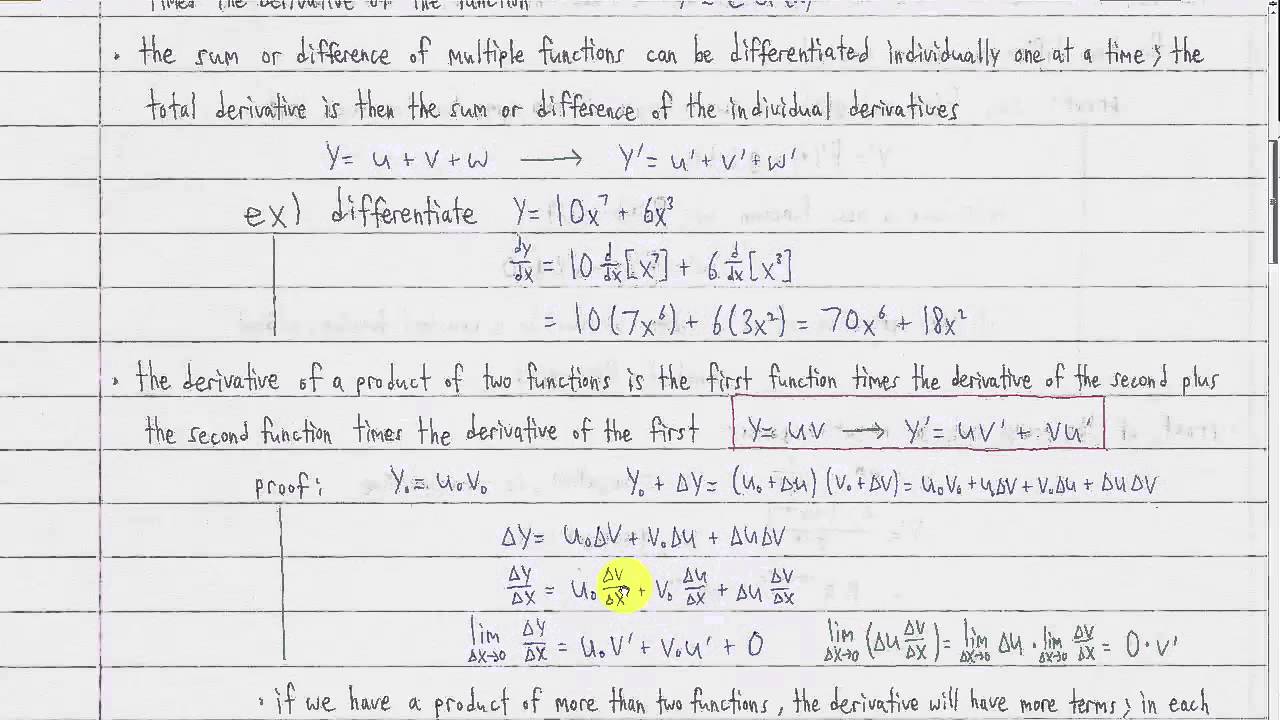 times the derivative of the function
• the sum or difference of multiple functions can be differentiated individually one at a time; the
total derivative is then the sum or difference of the individual derivatives
Y= u + v + w ⟶ Y'= u' + v' + w'
ex) differentiate Y= 10x⁷ + 6x³
dy/dx = 10 d/dx [x⁷] + 6 d/dx [x³]
= 10(7x⁶) + 6(3x²) = 70x⁶ + 18x²
• the derivative of a product of two functions is the first function times the derivative of the second plus
the second function times the derivative of the first Y= uv ⟶ Y'= uv' + vu'
proof: Y₀ = u₀v₀ Y₀ + ΔY = (u₀+Δu)(v₀+Δv) = u₀v₀ + uΔv + v₀Δu + ΔuΔv
ΔY= u₀Δv + v₀Δu + ΔuΔv
ΔY/ΔX = u₀ Δv/ΔX + v₀ Δu/ΔX + Δu Δv/ΔX
lim ΔX→0 ΔY/ΔX = u₀v' + v₀u' + 0 lim ΔX→0 (Δu Δv/ΔX) = lim ΔX→0 Δu · lim ΔX→0 Δv/ΔX = 0·v'
• if we have a product of more than two functions, the derivative will have more terms; in each